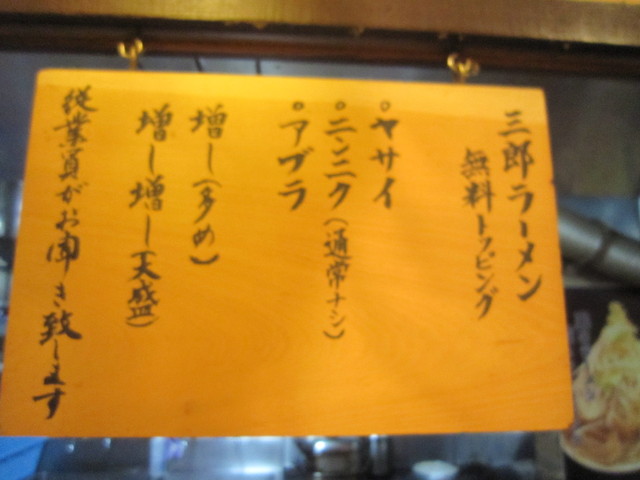 三郎ラーメン
無料トッピング
。ヤサイ
。ニンニク(通常ナシ)
。アブラ
増し(多め)
増し増し(天盛)
従業員がお聞き致します